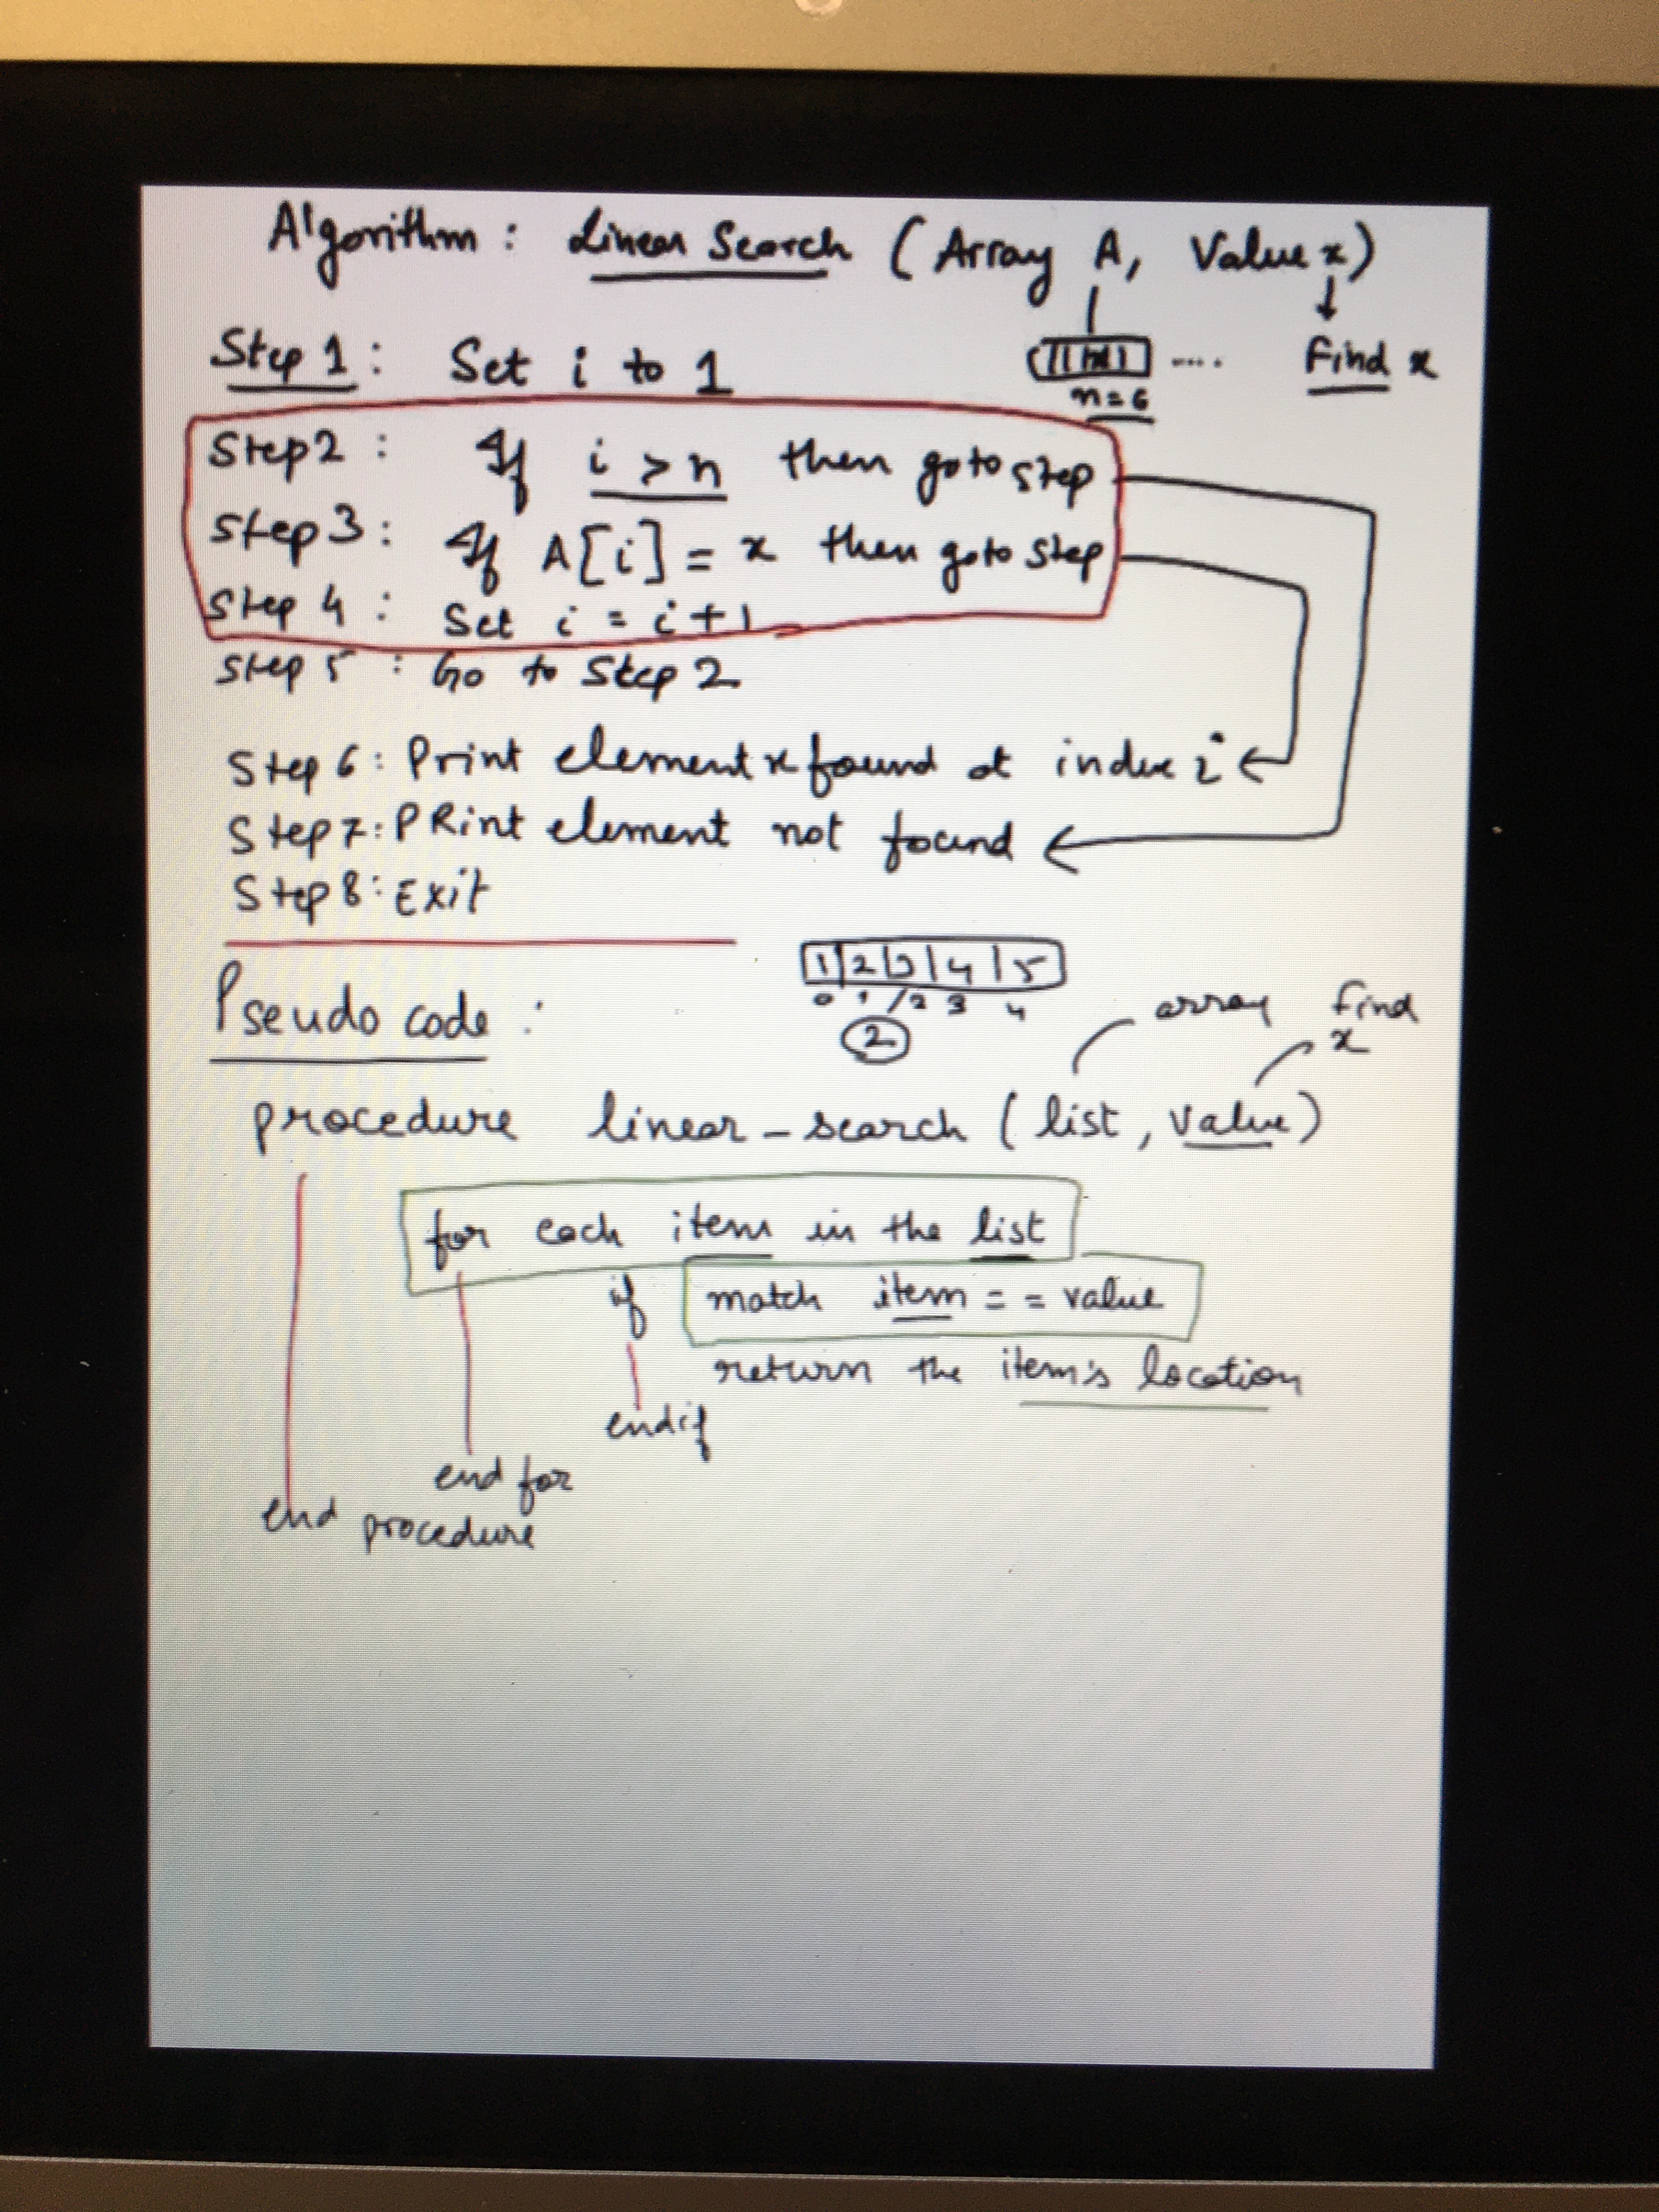 Algorithm : Linear Search (Array A, Value x)
Step 1 : Set i to 1
n=6
.... Find x
Step2 : If i > n then goto step
Step3 : If A[i] = x then goto step
Step 4 : Set i = i+1
Step 5 : Go to Step 2
Step 6 : Print element x found at index i
Step 7 : PRint element not found
Step 8 : Exit
1 2 3 4 5
0 1 2 3 4
2
Pseudo code :
array find
x
procedure linear_search (list, value)
for each item in the list
if match item == value
return the item's location
endif
end for
end procedure